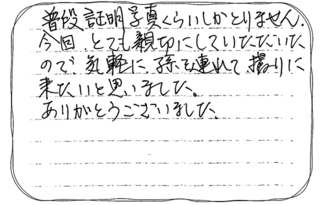 普段証明写真くらいしかとりません。
今回、とても親切にしていただいた
ので、気軽に、孫を連れて撮りに
来たいと思いました。
ありがとうございました。